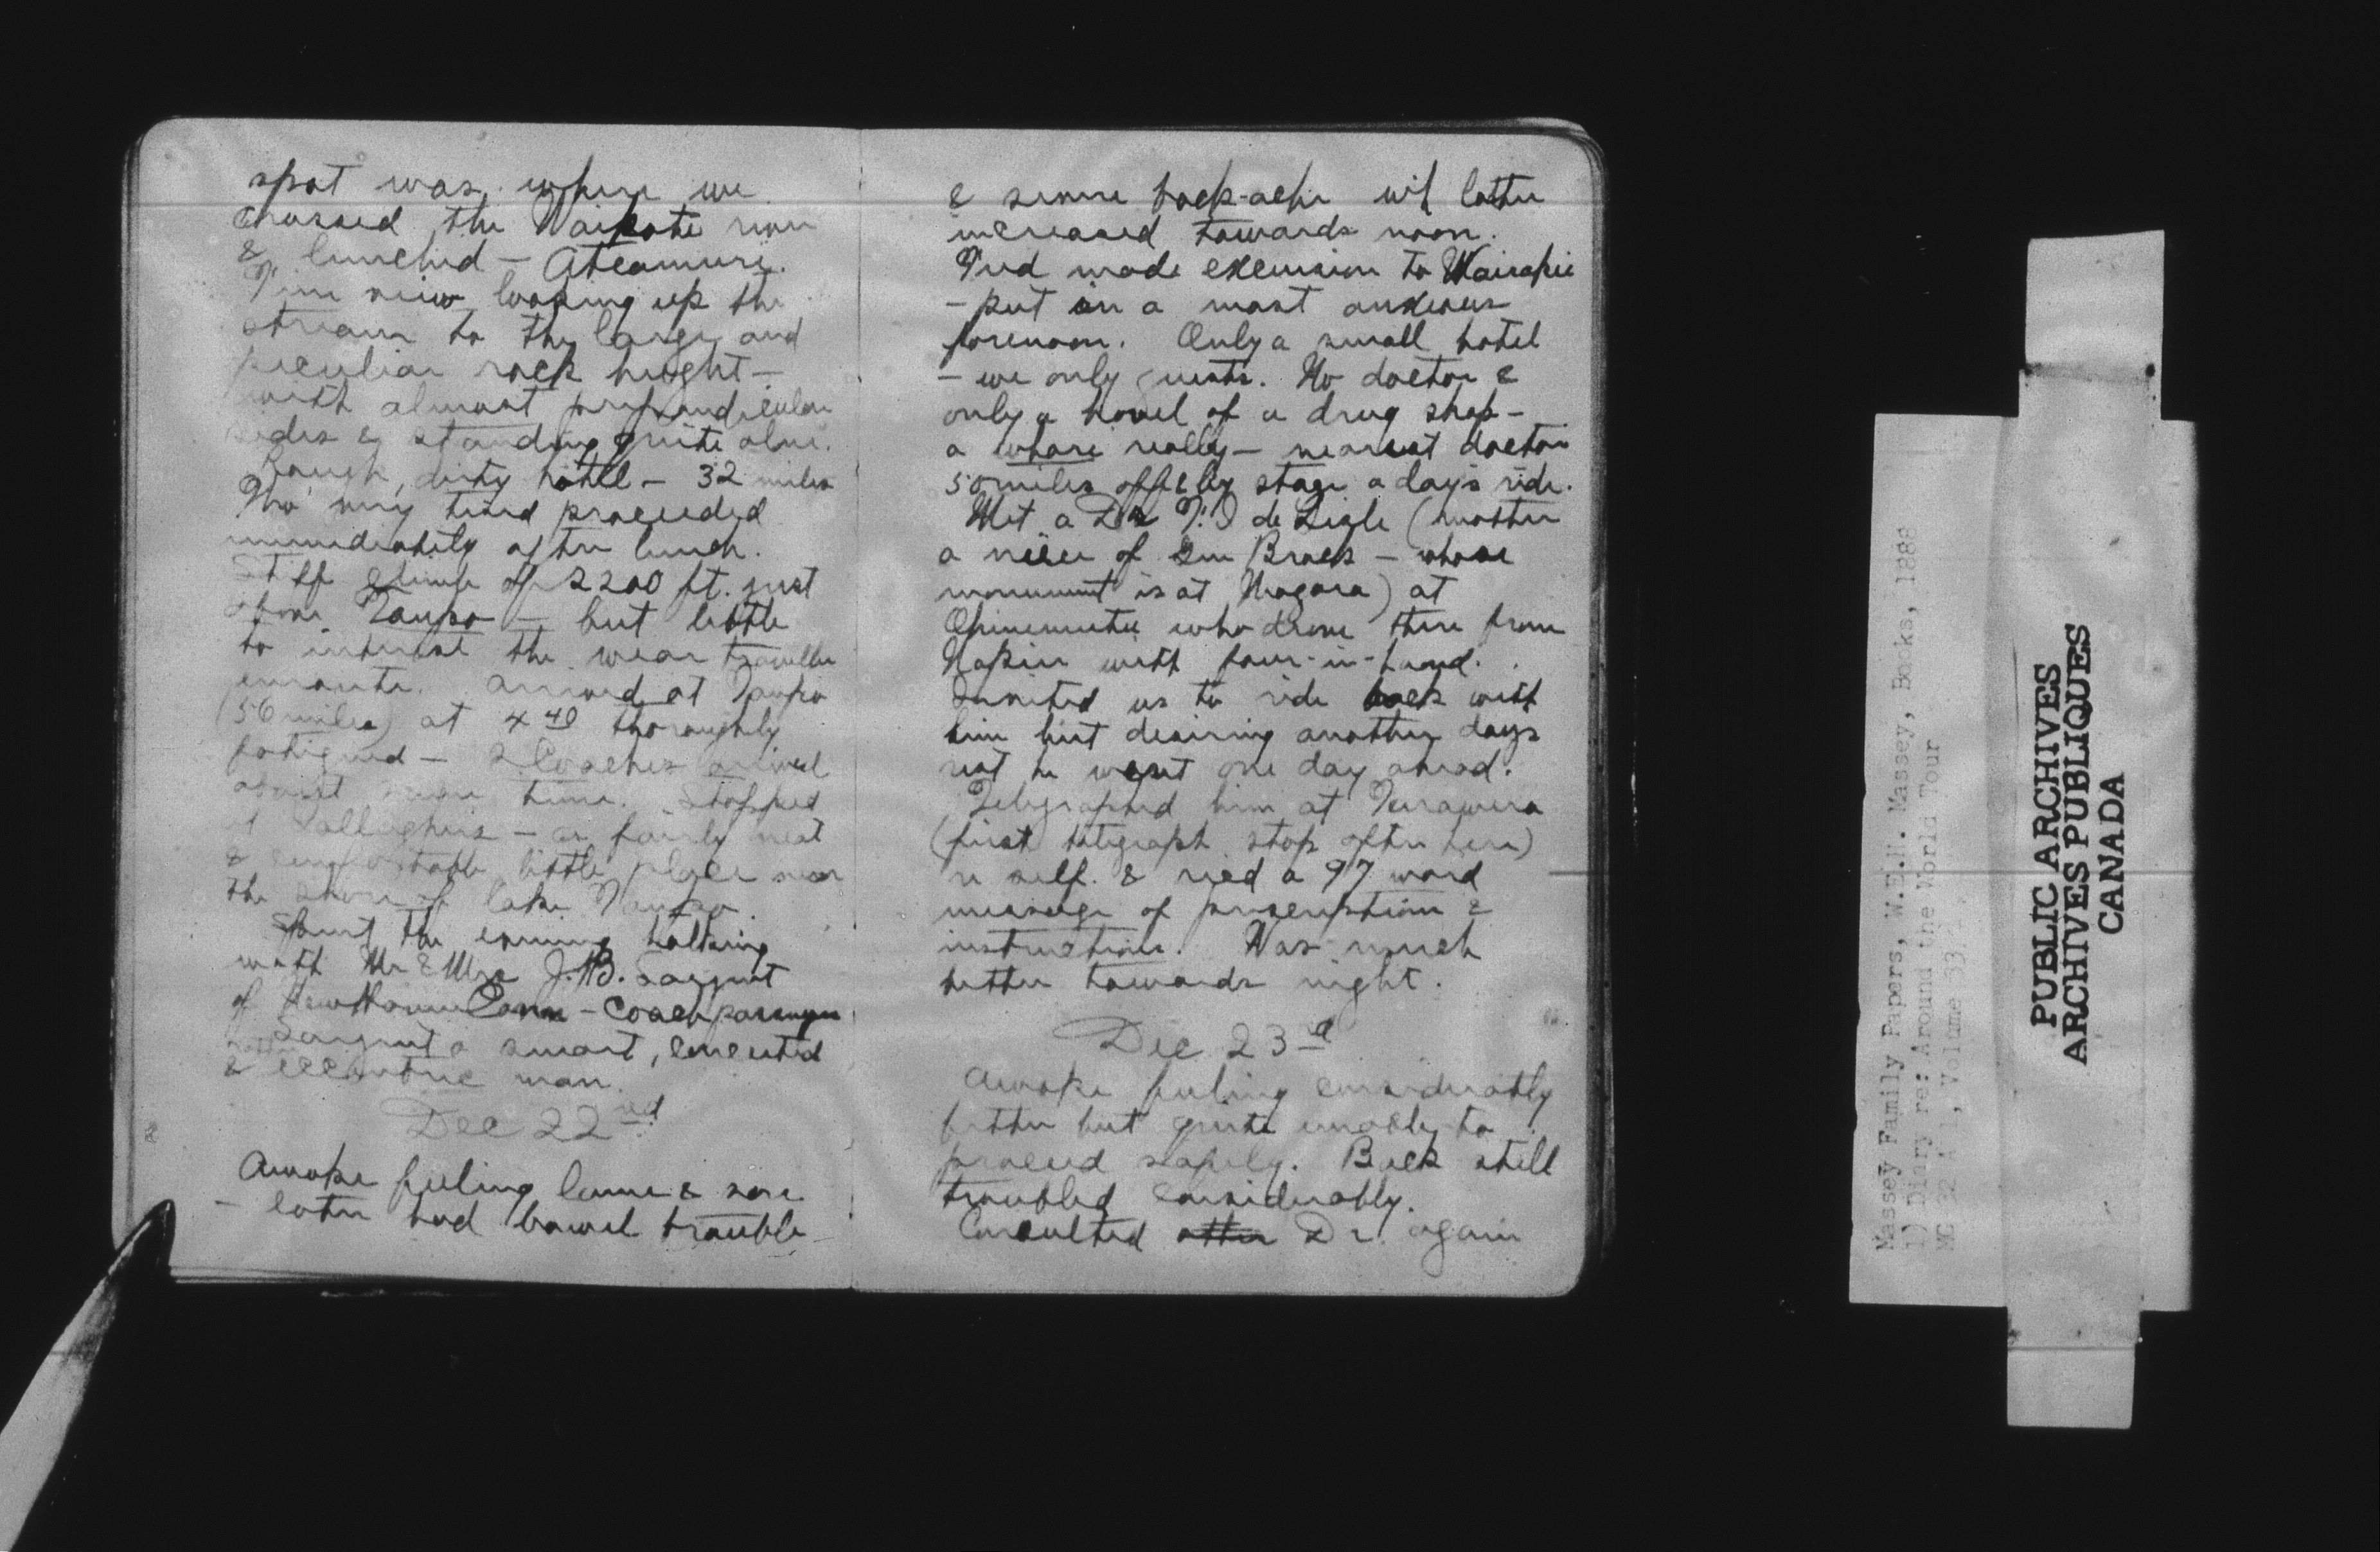 spot was where we
crossed the Waikato river
& lunched - Ateamuri.
Fine view looking up the
stream to the large and
peculiar rock height -
with almost perpendicular
sides & standing quite alone.
Rough, dirty hotel - 32 miles
Tho' very tired proceeded
immediately after lunch.
Stiff climb of 2200 ft. just
Taupo - but little
to interest the wear traveller
enroute. Arrived at Taupo
(56 miles) at 4 40 thoroughly
fatigued - 2 Coaches arrived
about same time. Stopped
at Gallaghers - a fairly neat
& comfortable little place near
the shore of lake Taupo.
Spent the evening talking
with Mr & Mrs J.B. Sargent
of New Haven Conn - Coach passengers
Sargent a smart, conceited
& rather eccentric man.
Dec 22nd
Awoke feeling lame & sore
- later had bowel trouble -
& severe back-ache wh latter
increased towards noon.
Fred made excursion to Wairakie
- put in a most anxious
forenoon. Only a small hotel
- we only guests. No doctor &
only a hovel of a drug shop -
a whare really - nearest doctor
50 miles off & by stage a day's ride.
Met a Dr F. I de Lisle (mother
a niece of Gen Brock - whose
monument is at Niagara) at
Ohinemutu who drove there from
Napier with four-in-hand.
Invited us to ride back with
him but desiring another days
rest he went one day ahead.
Telegraphed him at Tarawera
(first telegraph stop after here)
re self. & recd a 97 word
message of prescription &
instructions. Was much
better towards night.
Dec 23d
Awoke feeling considerably
better but quite unable to
proceed safely. Back still
troubled considerably.
Consulted Dr. again
Massey Family Papers, W.E.H. Massey, Books, 1888
1) Diary re: Around the World Tour
MG 32 A 1, Volume 33,
PUBLIC ARCHIVES
ARCHIVES PUBLIQUES
CANADA